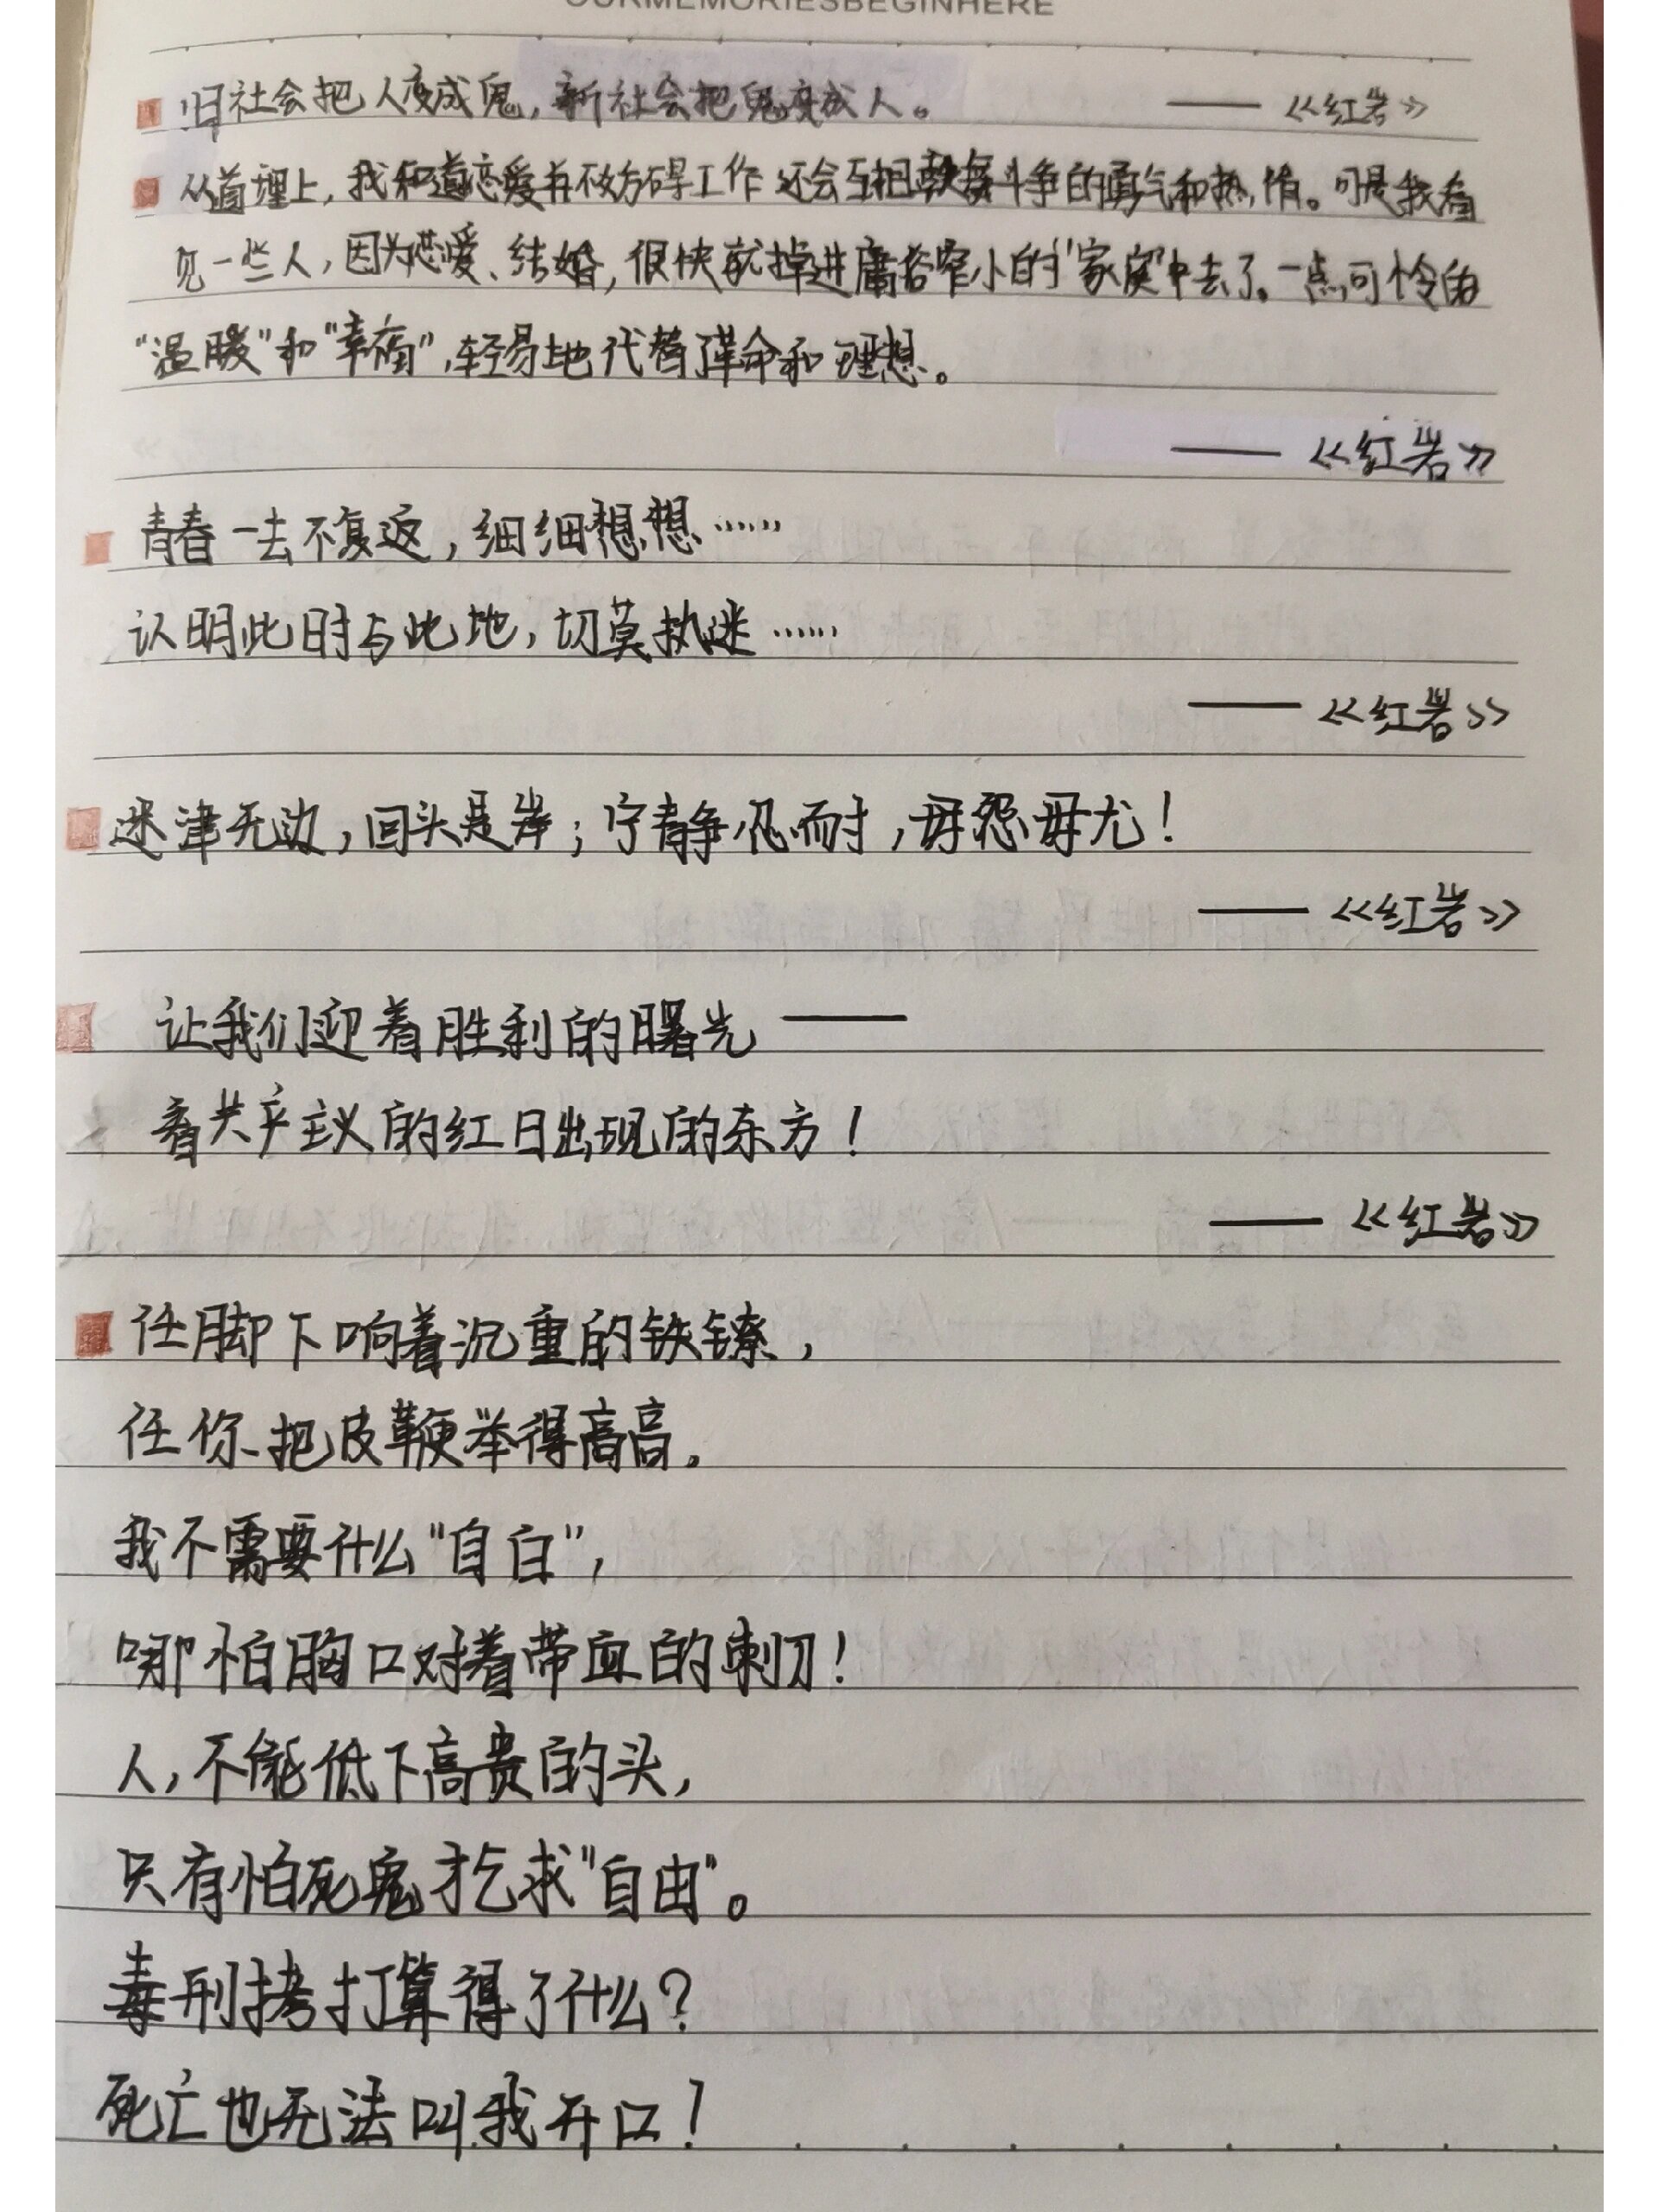 OURMEMORIESBEGINHERE
旧社会把人变成鬼,新社会把鬼变成人。 —— 《红岩》
从道理上,我知道恋爱并不妨碍工作 还会互相鼓舞斗争的勇气和热情。可是我看
见一些人,因为恋爱、结婚,很快就掉进庸俗窄小的“家庭”中去了。一点可怜的
“温暖”和“幸福”,轻易地代替了革命和理想。
—— 《红岩》
青春一去不复返,细细想想……
认明此时与此地,切莫执迷……
—— 《红岩》
迷津无边,回头是岸;宁静忍耐,毋怨毋尤!
—— 《红岩》
让我们迎着胜利的曙光——
看共产主义的红日出现的东方!
—— 《红岩》
任脚下响着沉重的铁镣,
任你把皮鞭举得高高。
我不需要什么“自白”,
哪怕胸口对着带血的刺刀!
人,不能低下高贵的头,
只有怕死鬼才乞求“自由”。
毒刑拷打算得了什么?
死亡也无法叫我开口!